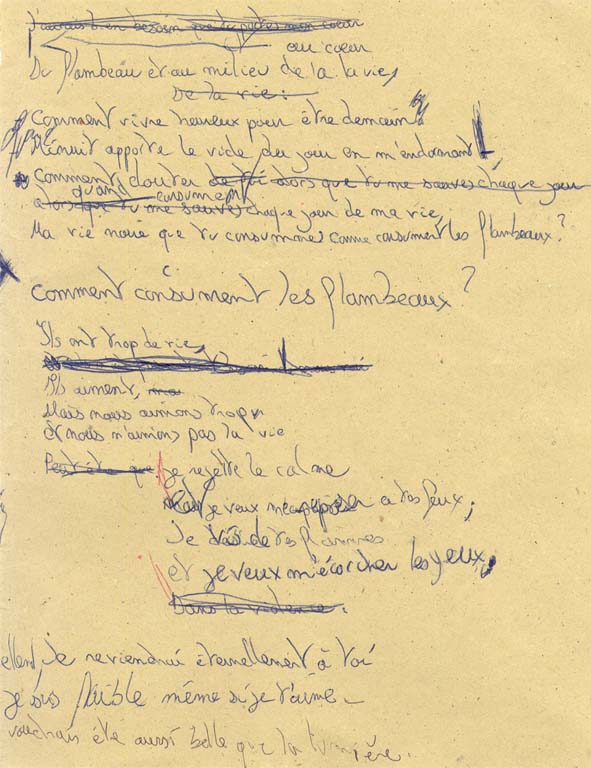 J'aurais bien besoin que tu portes mon coeur
au coeur
Du flambeau et au milieu de la la vie,
De la vie.
Comment vivre heureux pour être demain?
Minuit apporte le vide du jour en m'endormant,
Comment douter de toi alors que tu me sauves chaque jour
quand consument
alors que tu me sauves chaque jour de ma vie,
Ma vie noire que tu consumme comme consument les flambeaux?
Comment consument les flambeaux?
Ils ont trop de vie,
Ils aiment,
Mais nous aimions trop
Et nous n'aimions pas la vie
Peut être que je rejette le calme
je veux à tes feux;
Je de tes flammes
et je veux m'écorcher les yeux,
Dans la violence.
Je reviendrai éternellement à toi
je suis faible même si je t'aime
voudrais être aussi belle que la lumière.